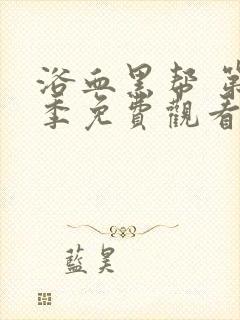 浴血黑帮 第
季免費觀看
藍昊